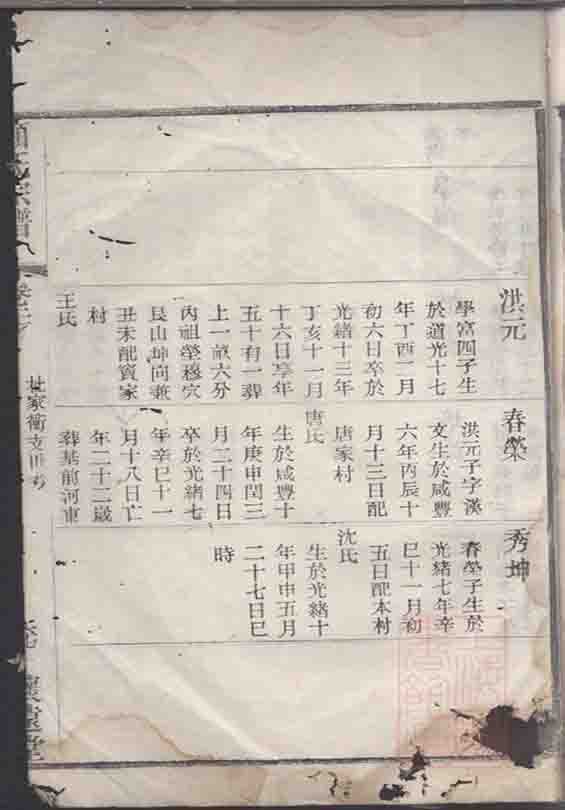 洪元
學富四子生
於道光十七
年丁酉二月
初六日卒於
光緒十三年
丁亥十一月
十六日享年
五十有一葬
上一畝六分
丙祖塋穆穴
艮山坤向兼
丑未配竇家
村
王氏
春榮
洪元子字漢
文生於咸豐
六年丙辰十
月十三日配
唐家村
唐氏
生於咸豐十
年庚申閏三
月二十四日
卒於光緒七
年辛巳十一
月十八日亡
年二十二歲
葬基前河東
秀坤
春榮子生於
光緒七年辛
巳十一月初
五日配本村
沈氏
生於光緒十
年甲申五月
二十七日巳
時
氏宗譜
家衖支
堂